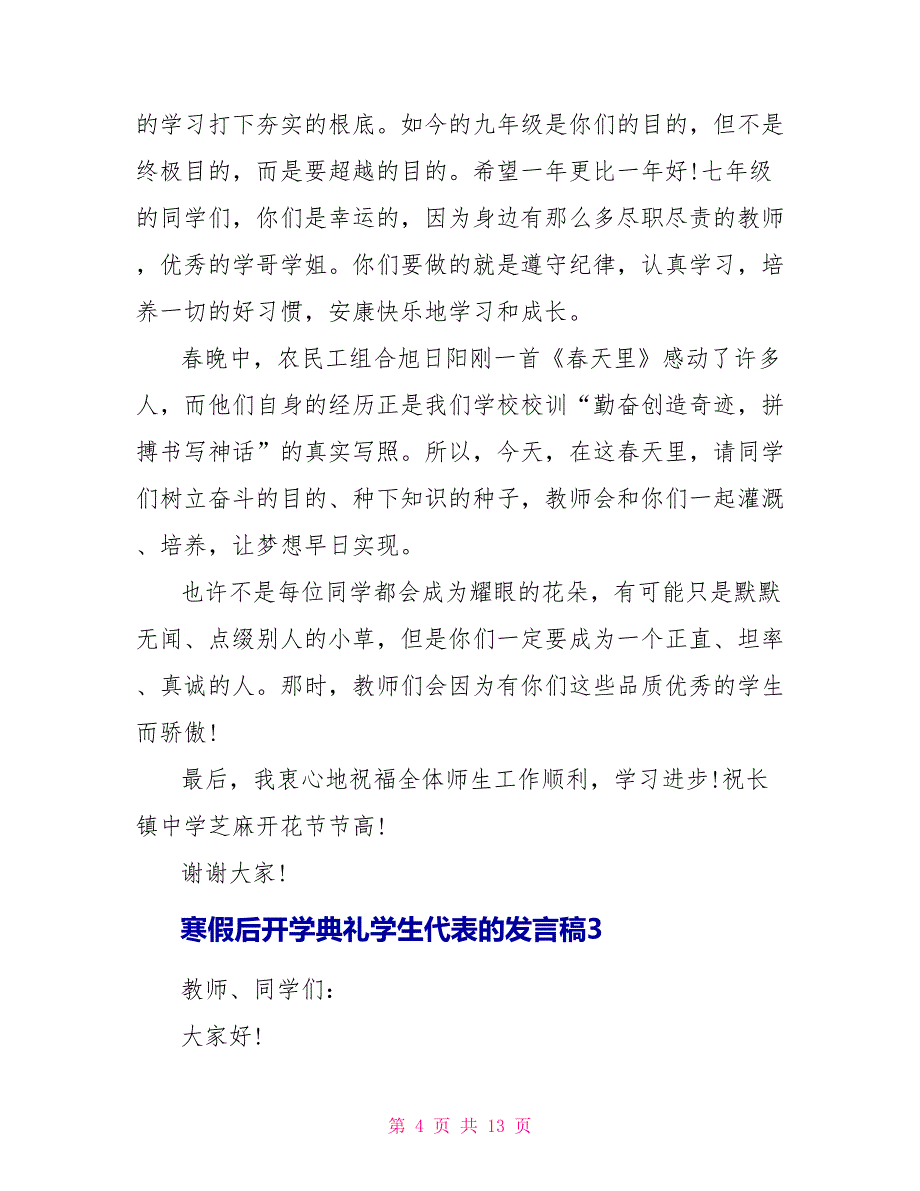 的学习打下夯实的根底。如今的九年级是你们的目的，但不是
终极目的，而是要超越的目的。希望一年更比一年好!七年级
的同学们，你们是幸运的，因为身边有那么多尽职尽责的教师
，优秀的学哥学姐。你们要做的就是遵守纪律，认真学习，培
养一切的好习惯，安康快乐地学习和成长。
春晚中，农民工组合旭日阳刚一首《春天里》感动了许多
人，而他们自身的经历正是我们学校校训“勤奋创造奇迹，拼
搏书写神话”的真实写照。所以，今天，在这春天里，请同学
们树立奋斗的目的、种下知识的种子，教师会和你们一起灌溉
、培养，让梦想早日实现。
也许不是每位同学都会成为耀眼的花朵，有可能只是默默
无闻、点缀别人的小草，但是你们一定要成为一个正直、坦率
、真诚的人。那时，教师们会因为有你们这些品质优秀的学生
而骄傲!
最后，我衷心地祝福全体师生工作顺利，学习进步!祝长
镇中学芝麻开花节节高!
谢谢大家!
寒假后开学典礼学生代表的发言稿3
教师、同学们：
大家好!
第 4 页 共 13 页